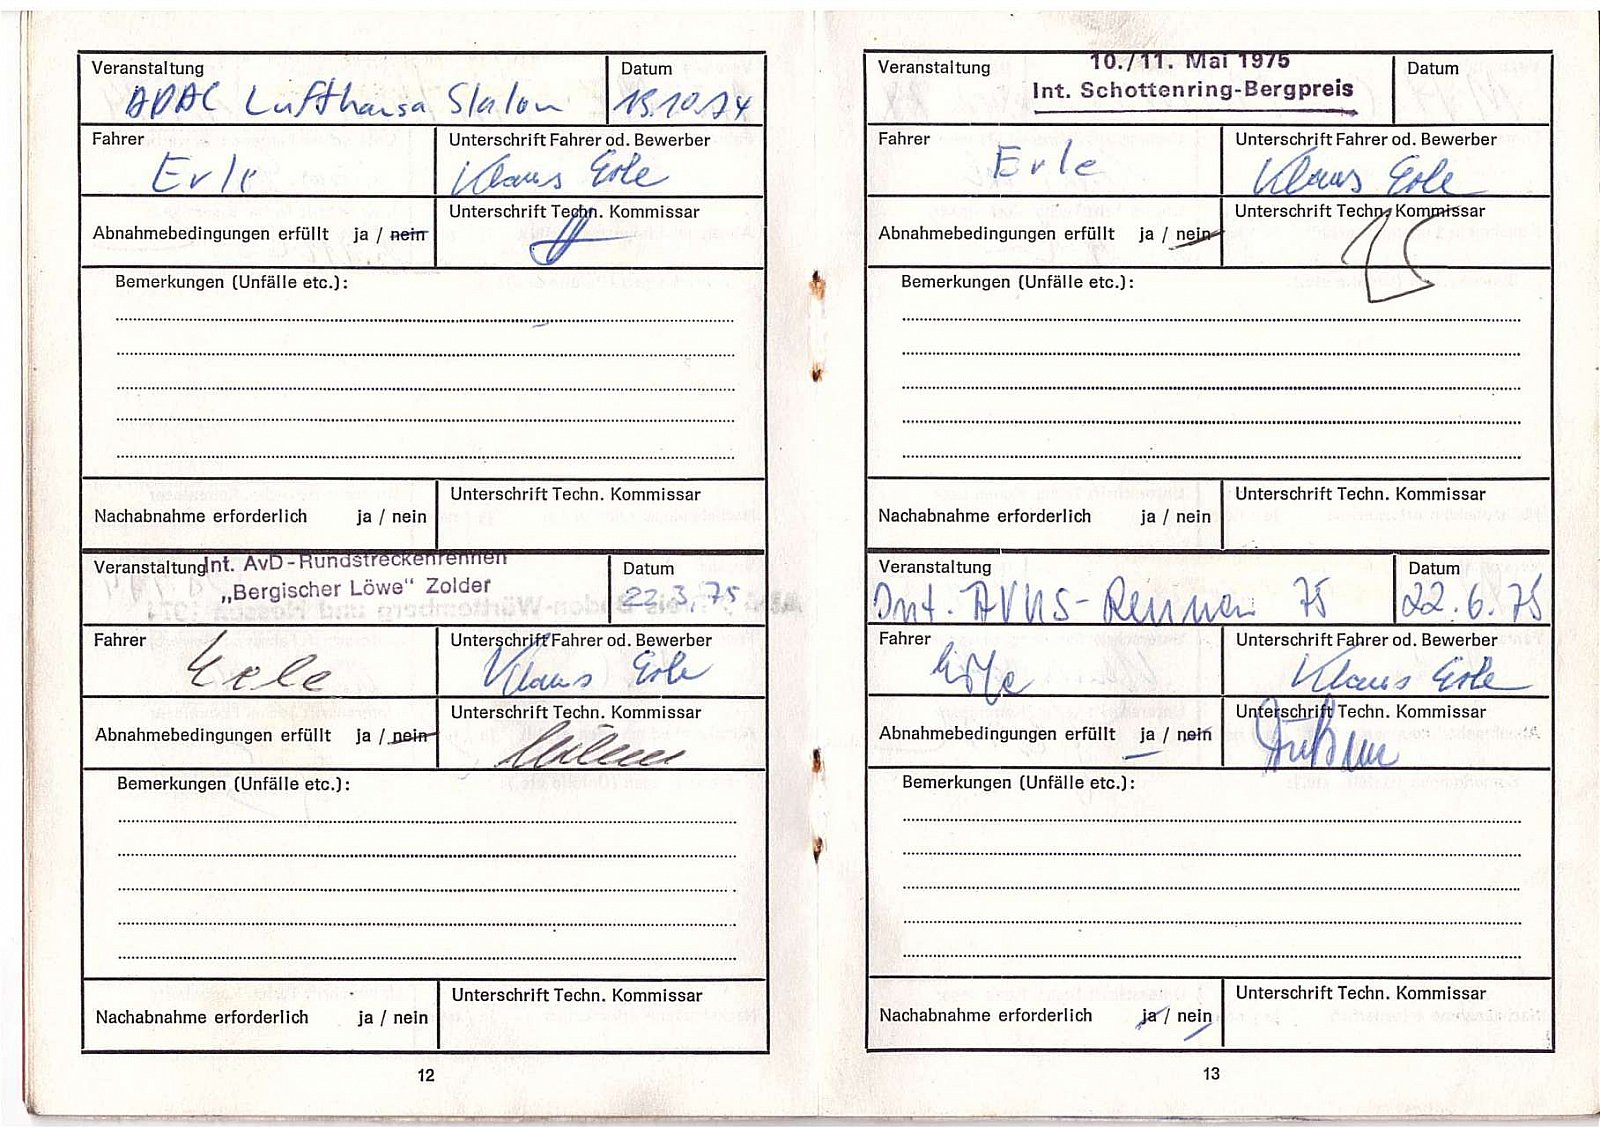 Veranstaltung
Datum
ADAC Lufthansa Slalom
13.10.74
Fahrer
Unterschrift Fahrer od. Bewerber
Erle
Klaus Erle
Unterschrift Techn. Kommissar
Abnahmebedingungen erfüllt ja / nein
Bemerkungen (Unfälle etc.):
Unterschrift Techn. Kommissar
Nachabnahme erforderlich ja / nein
Veranstaltung
Int. AvD-Rundstreckenrennen
„Bergischer Löwe“ Zolder
Datum
22.3.75
Fahrer
Unterschrift Fahrer od. Bewerber
Erle
Klaus Erle
Unterschrift Techn. Kommissar
Abnahmebedingungen erfüllt ja / nein
Bemerkungen (Unfälle etc.):
Unterschrift Techn. Kommissar
Nachabnahme erforderlich ja / nein
12
Veranstaltung
10./11. Mai 1975
Int. Schottenring-Bergpreis
Datum
Fahrer
Unterschrift Fahrer od. Bewerber
Erle
Klaus Erle
Unterschrift Techn. Kommissar
Abnahmebedingungen erfüllt ja / nein
Bemerkungen (Unfälle etc.):
Unterschrift Techn. Kommissar
Nachabnahme erforderlich ja / nein
Veranstaltung
Datum
Int. AVUS-Rennen 75
22.6.75
Fahrer
Unterschrift Fahrer od. Bewerber
Erle
Klaus Erle
Unterschrift Techn. Kommissar
Abnahmebedingungen erfüllt ja / nein
Bemerkungen (Unfälle etc.):
Unterschrift Techn. Kommissar
Nachabnahme erforderlich ja / nein
13